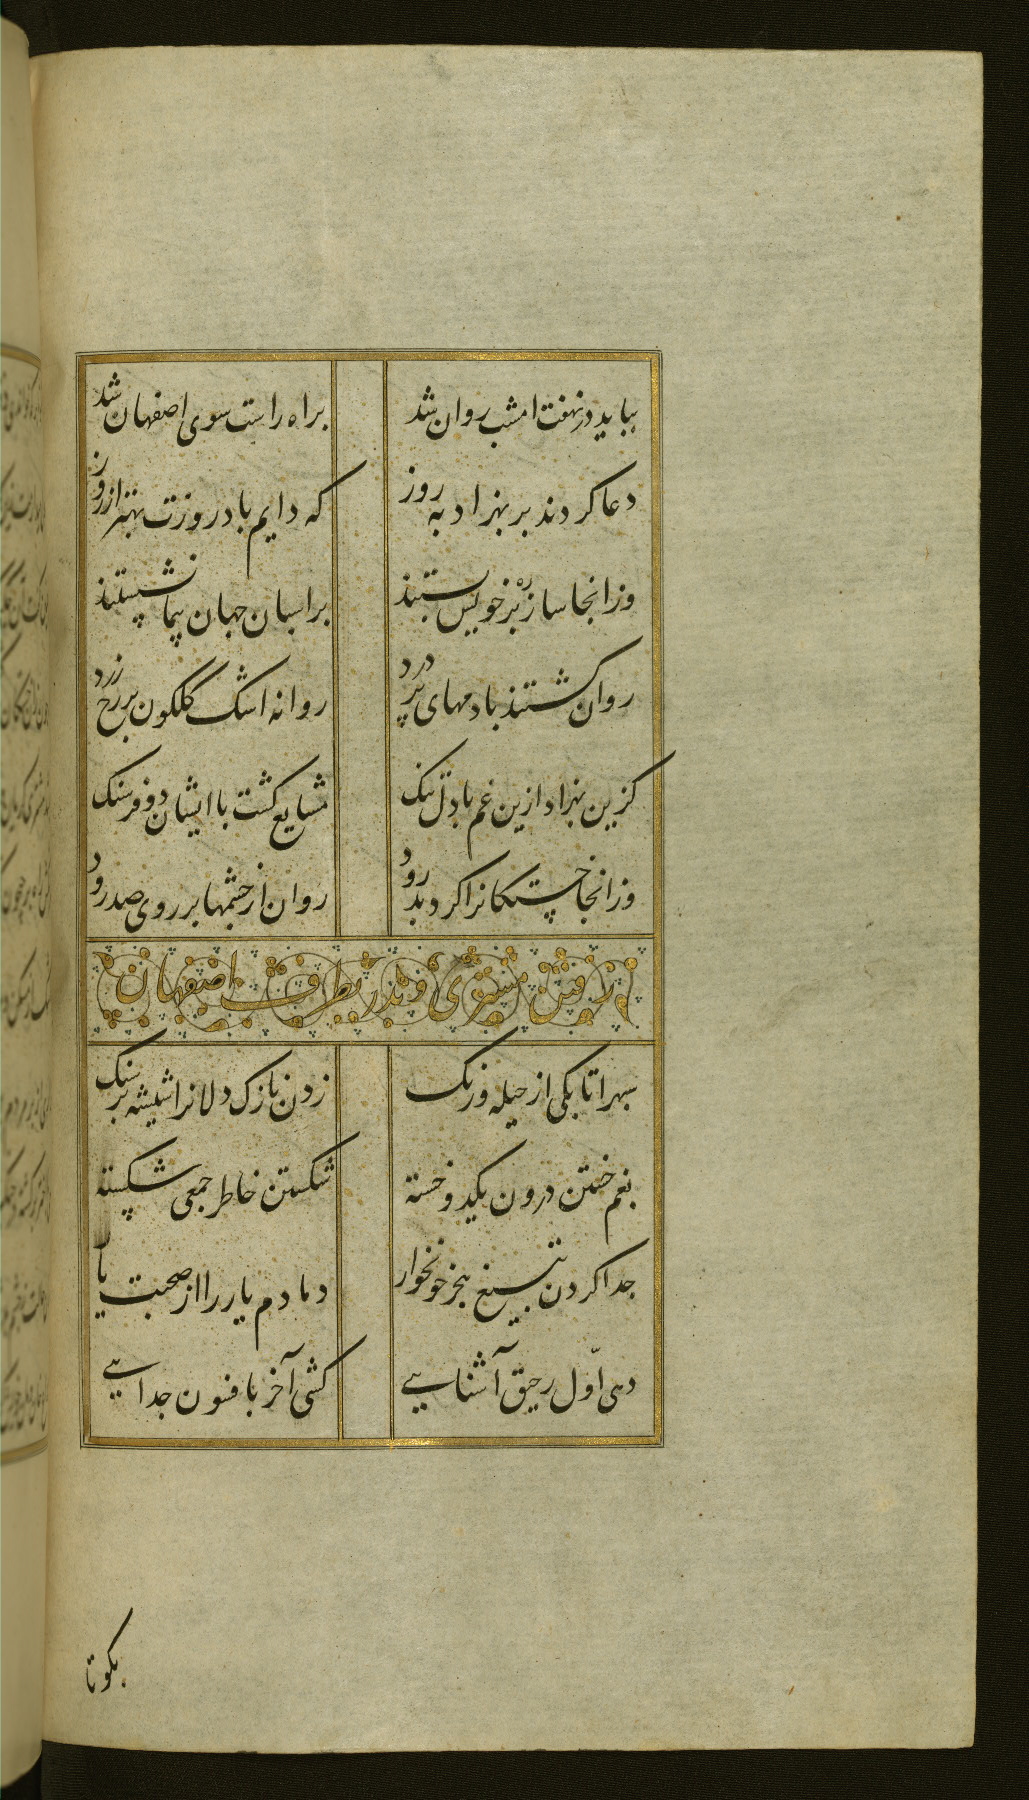 بباید در نهفت امشب روان شد براه راست سوی اصفهان شد
دعا کردند بر بهزاد به روز که دایم باد روزت بهتر از روز
وز انجا ساز ره بر خویش بستند بر اسبان جهان پیما نشستند
روان کشتند با دمهای پر درد روانه اشک کلکون بر رخ زرد
کزین بهزاد ازین غم با دل تنک مشایع کشت با ایشان دو فرسنک
وز انجا خستکانرا کرد بدرود روان از چشمها بر روی صد رود
رفتن مشتری و بدر بطرف اصفهان
سپهرا تا بکی از حیله و رنک زدن نازک دلانرا شیشه بر سنک
بغم خستن درون یکدو خسته شکستن خاطر جمعی شکسته
جدا کردن بتیغ هجر خونخوار دمادم یار را از صحبت یار
دهی اوّل رحیق آشنایی کشی آخر بافسون جدایی
بکو تا